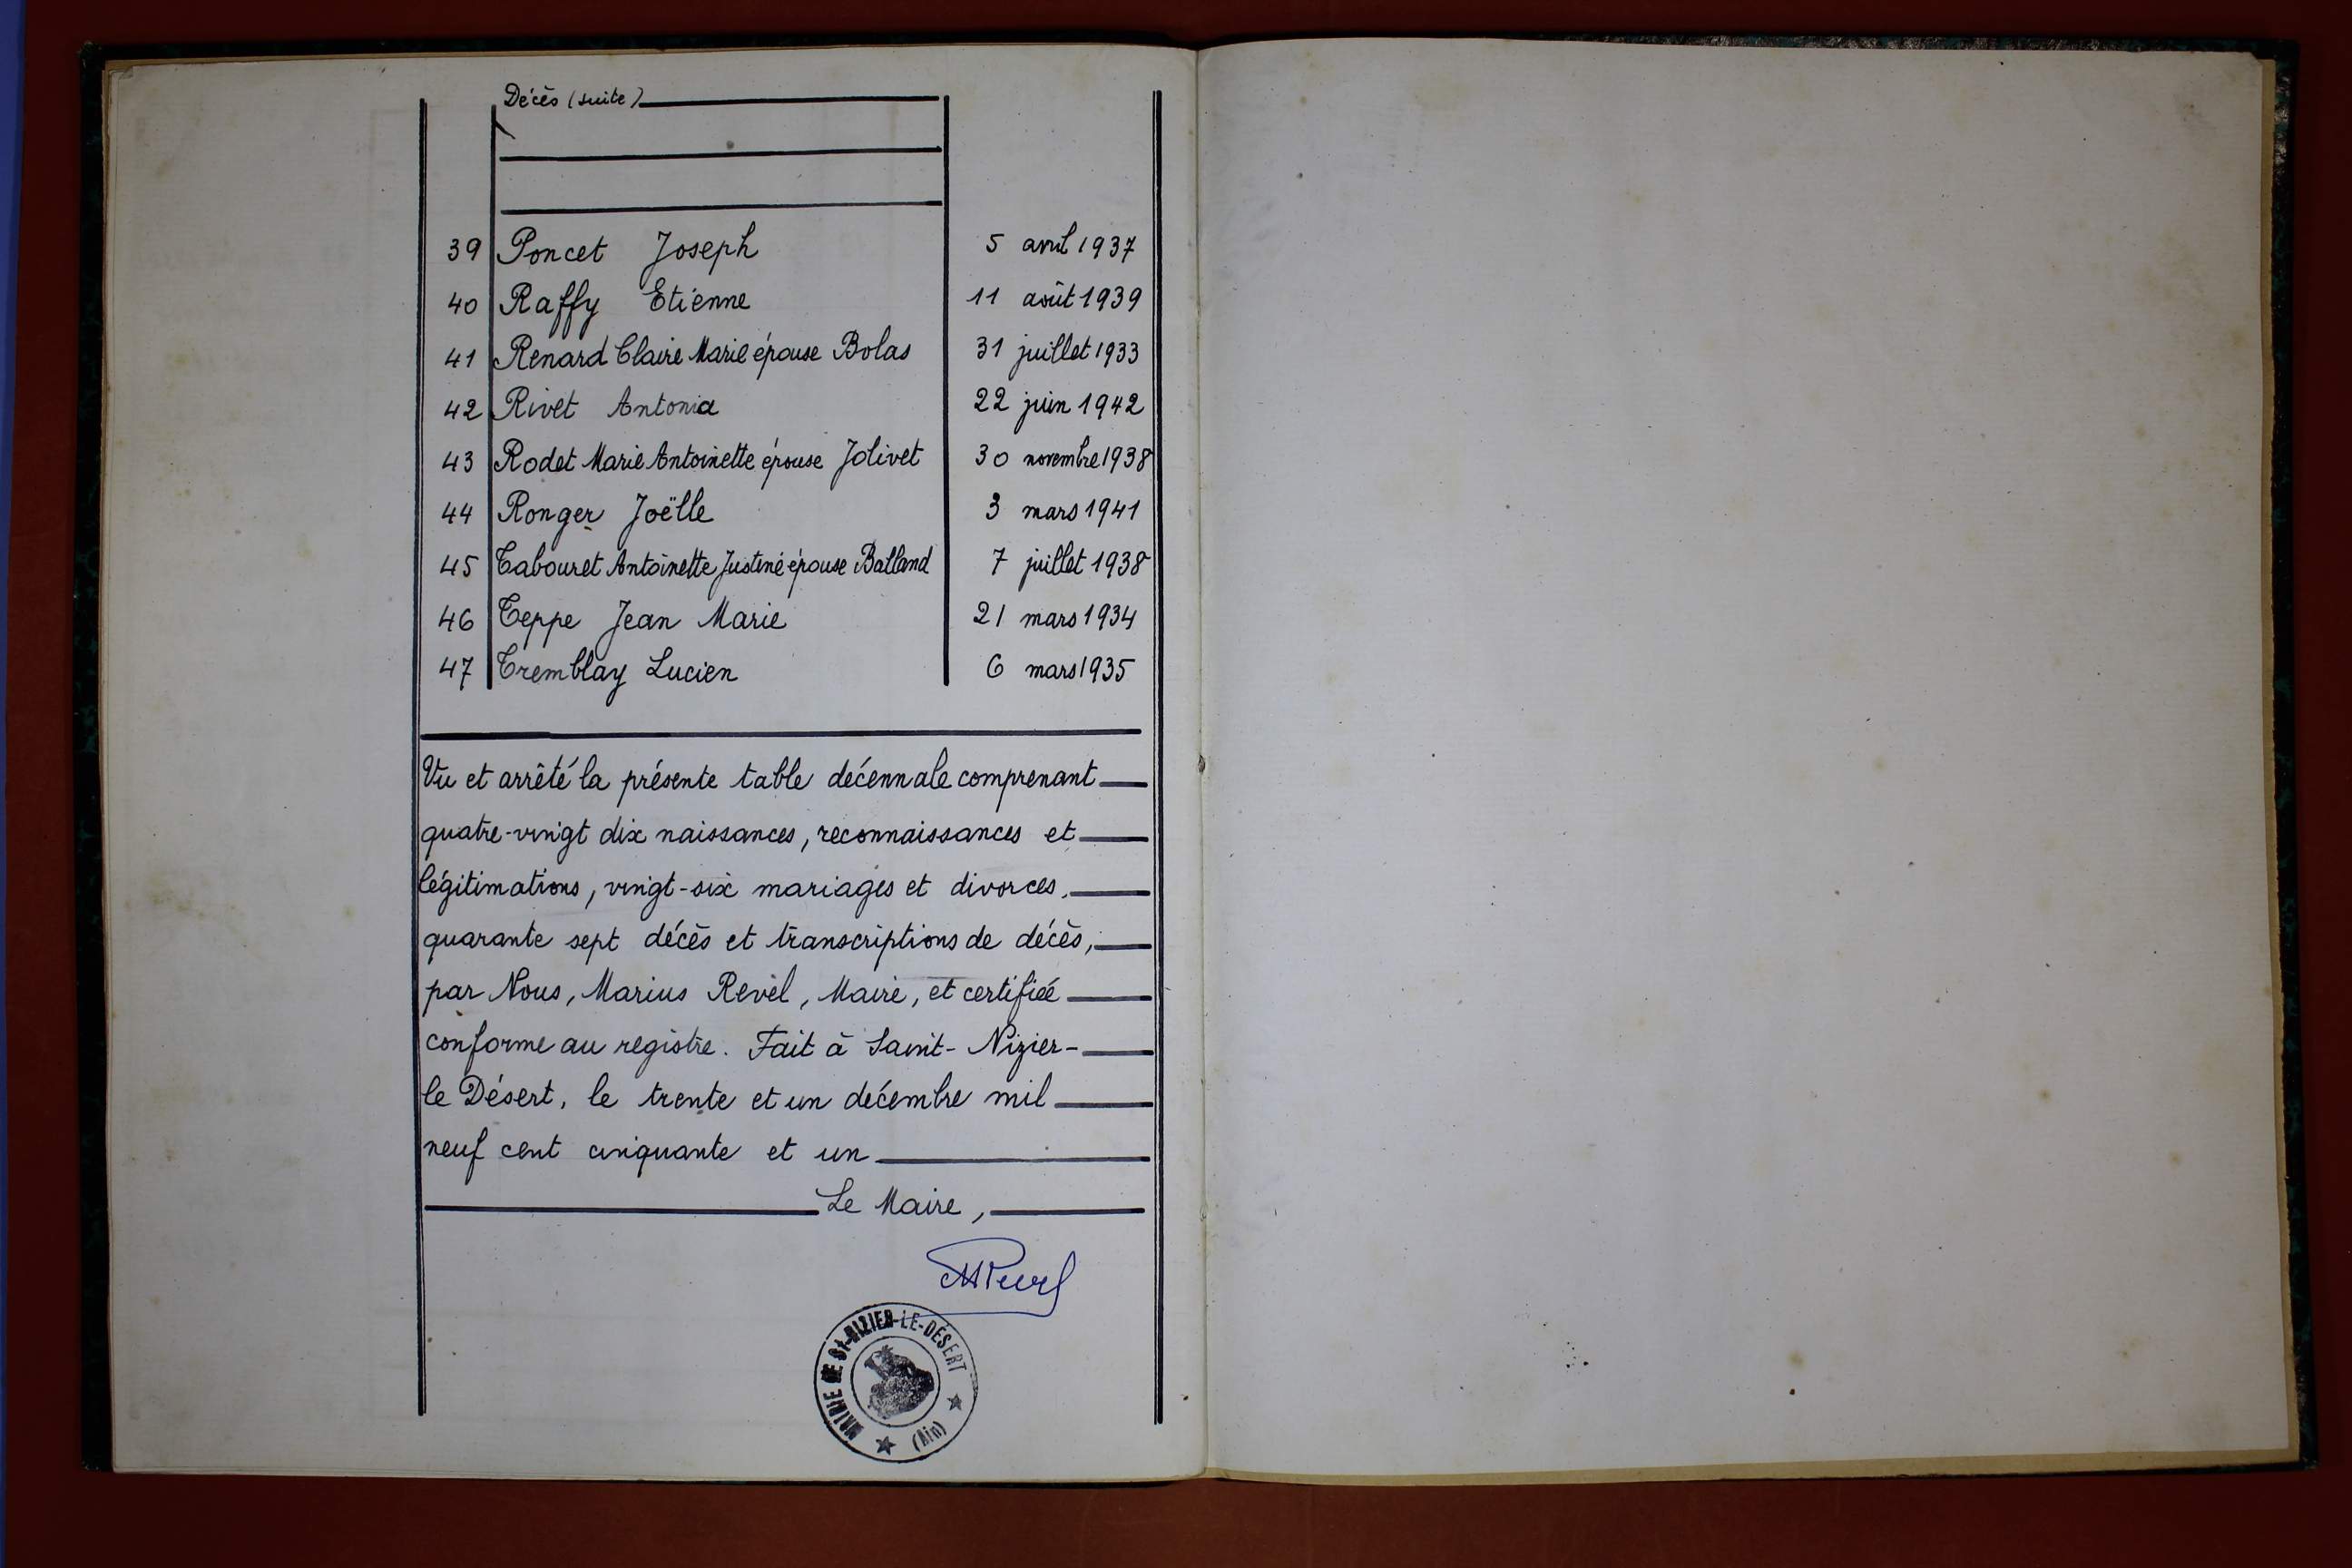 Décès (suite)
39 Poncet Joseph 5 avril 1937
40 Raffy Etienne 11 août 1939
41 Renard Claire Marie épouse Bolas 31 juillet 1933
42 Rivet Antonia 22 juin 1942
43 Rodet Marie Antoinette épouse Jolivet 30 novembre 1938
44 Ronger Joëlle 3 mars 1941
45 Tabouret Antoinette Justine épouse Balland 7 juillet 1938
46 Teppe Jean Marie 21 mars 1934
47 Tremblay Lucien 6 mars 1935
Vu et arrêté la présente table décennale comprenant
quatre-vingt dix naissances, reconnaissances et
légitimations, vingt-six mariages et divorces,
quarante sept décès et transcriptions de décès,
par Nous, Marius Revel, Maire, et certifiée
conforme au registre. Fait à Saint-Nizier-
le Désert, le trente et un décembre mil
neuf cent cinquante et un
Le Maire,
MRevel
MAIRIE DE ST-NIZIER-LE-DÉSERT
(Ain)